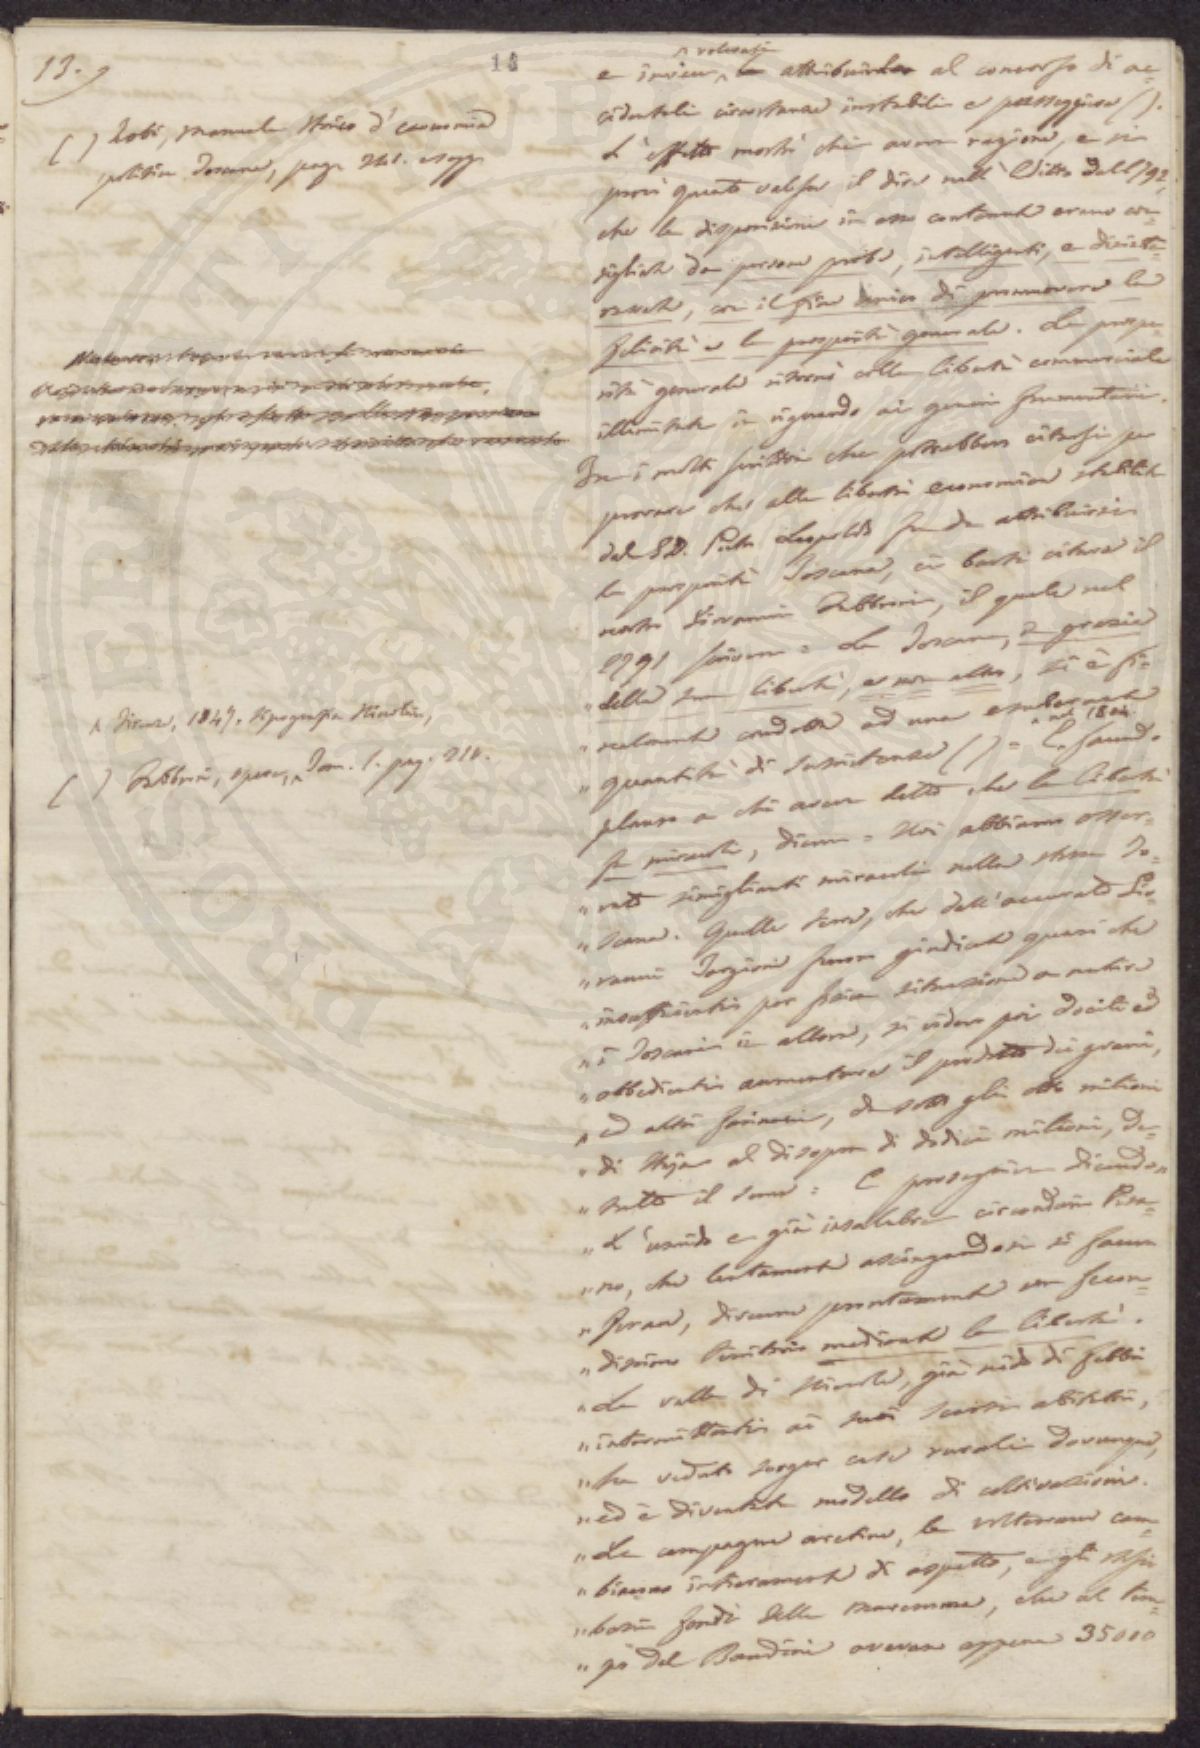 13.
14
( ) Zobi, Manuale Storico d'economia
politica Toscana, pag. 241. e segg.
^ Firenze, 1847. Tipografia
( ) Fabbroni, opere, ^ Tom. 1. pag. 210.
volevasi
e ^ attribuirlo al concorso di ac-
cidentali circostanze instabili e passeggiere ( ).
L'effetto mostrò chi avea ragione, e si
provò quanto valesse il dire nell'Editto del 1792,
che le disposizioni in esso contenute erano con-
sigliate da persone probe, intelligenti, e disinte-
ressate, con il fine unico di promuovere la
felicità e la prosperità generale. La prospe-
rità generale ritornò colla libertà commerciale
illimitata in riguardo ai generi frumentarii.
Tra i molti scrittori che potrebbero citarsi per
provare che alla libertà economica stabilita
dal G.D. Pietro Leopoldo fu da attribuirsi
la prosperità Toscana, ci basti citare il
nostro Giovanni Fabbroni, il quale nel
1791 scriveva = La Toscana, in grazia
„ della sua libertà, e non altro, si è fi-
„ nalmente condotta ad una esuberante
„ quantità di sussistenze ( ) = E, ^ nel 1804. facendo
plauso a chi aveva detto che la libertà
fa miracoli, diceva = Noi abbiamo osser-
„ vato simiglianti miracoli nella stessa To-
„ scana. Quelle terre, che dall'accurato Gio-
„ vanni Targioni furon giudicate quasi che
„ insufficienti per fisica situazione a nutrire
„ i Toscani d'allora, si videro poi docili ed
„ obbedienti aumentare il prodotto dei grani,
„ ed altri farinacei, da sotto gli otto milioni
„ di staja al disopra di dodici milioni, da-
„ tutto il seme = E proseguiva dicendo =
„ L'umido e già insalubre circondario Pisa-
„ no, che lentamente asciugandosi si faceva
„ sano, divenne prontamente un fecon-
„ dissimo territorio mediante la libertà.
„ La valle di Nievole, già nido di febbri
„ intermittenti ai suoi scarsi abitatori,
„ ha veduto sorger case rurali dovunque,
„ ed è diventata modello di coltivazione.
„ Le campagne aretine, le volterrane cam-
„ biarono intieramente di aspetto, e gli
„ fondi della Maremma, che al tem-
„ po del Bandini avevano appena 35000